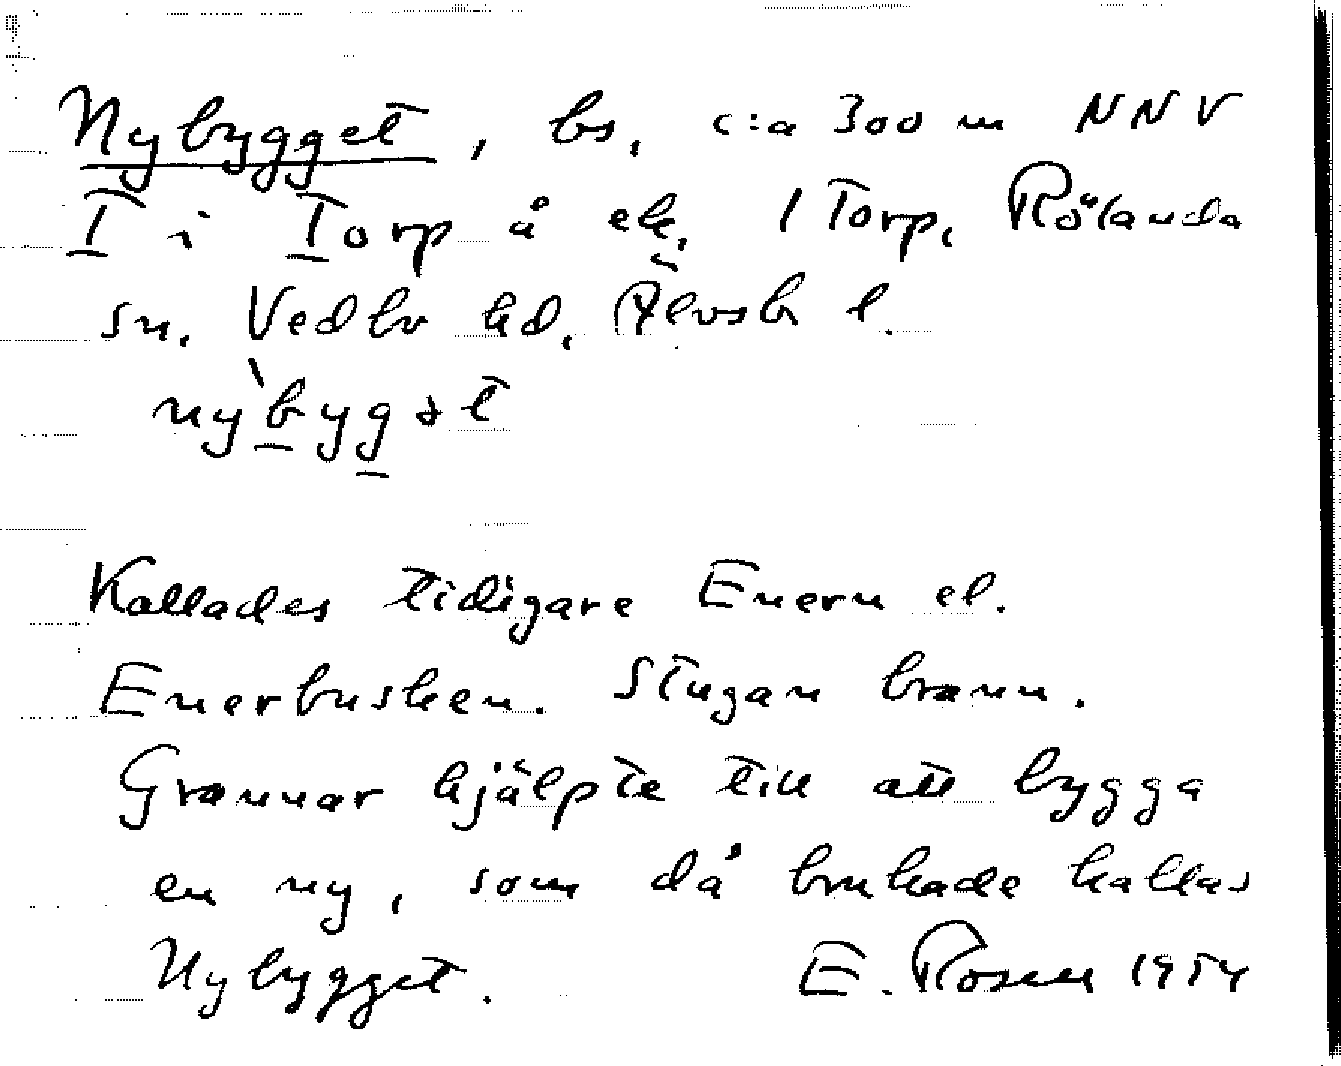 Nybygget, bs, c:a 300 m NNV
T i Torp å ek, 1 Torp, Rölanda
sn. Vedbo hd, Älvsb l.
nỳbygət
Kallades tidigare Enern el.
Enerbusken. Stugan brann.
Grannar hjälpte till att bygga
en ny, som då brukade kallas
Nybygget. E. Rosell 1954